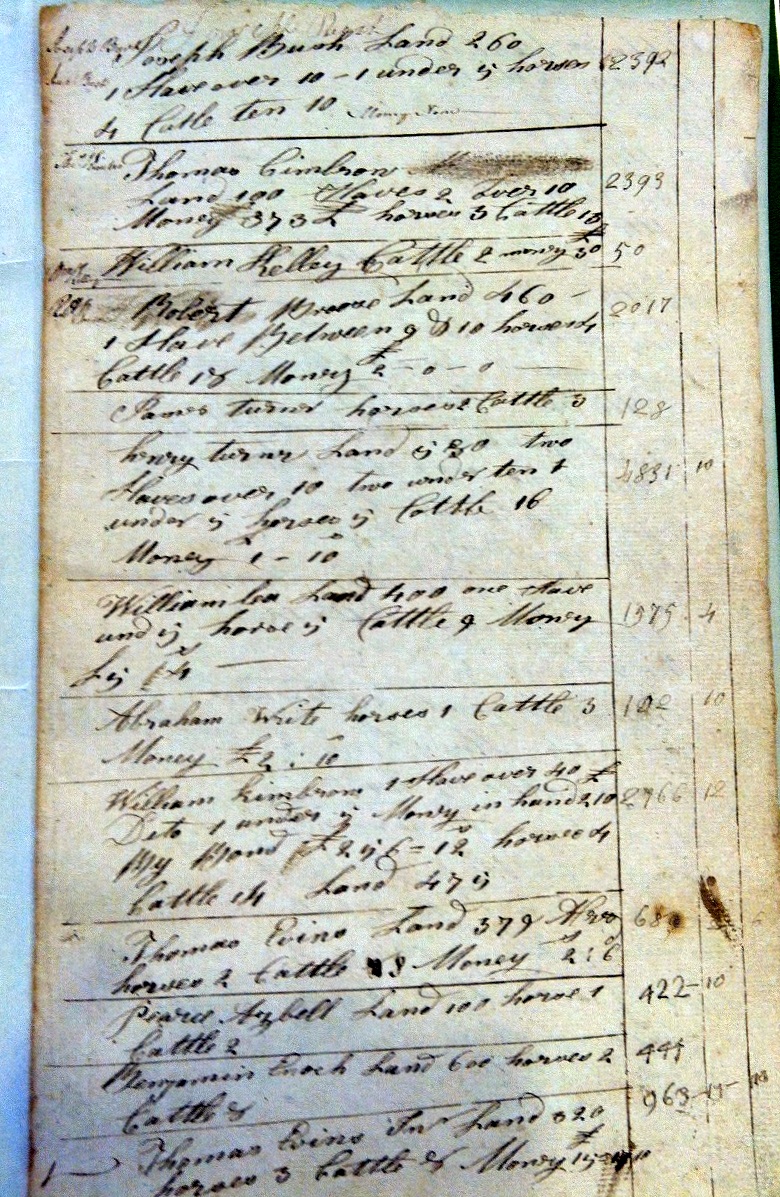 Joseph Bush Land 260
1 Slave over 10 - 1 under 5 horses 2392
4 Catle ten 10
Thomas Cimbrow
Land 100 Slaves 2 over 10 2393
Money 373 £ horses 3 Cattle 18
William Kelley Cattle 2 money £30 50
Robert Moore Land 460 - 2017
1 Slave Between 9 & 10 horses 4
Cattle 18 Money £2-0-0
James turner horses 2 Cattle 3 128
henry turner Land 5 30 two
Slaves over 10 two under ten 1 4831 10
under 5 horses 5 Cattle 16
Money 1 - 10
William lea Land 400 one Slave
und 5 horse 5 Cattle 9 Money 1575 4
£4
Abraham Write horses 1 Cattle 3 102 10
Money £2 : 10
William Kimbrow 1 Slave over 40 £
Deto 1 under 5 Money in hand 210 2966 12
By Bond £256=12 horses 4
Cattle 14 Land 475
Thomas Evins Land 379 Acres 68
horses 2 Cattle 8 Money 2:6
Pearce Azbell Land 100 horse 1 422-10
Cattle 2
Benjamin Enoch Land 600 horses 2 444
Cattle 8 963-15-
Thomas Evins Jnr Land 320
horses 3 Cattle 8 Money